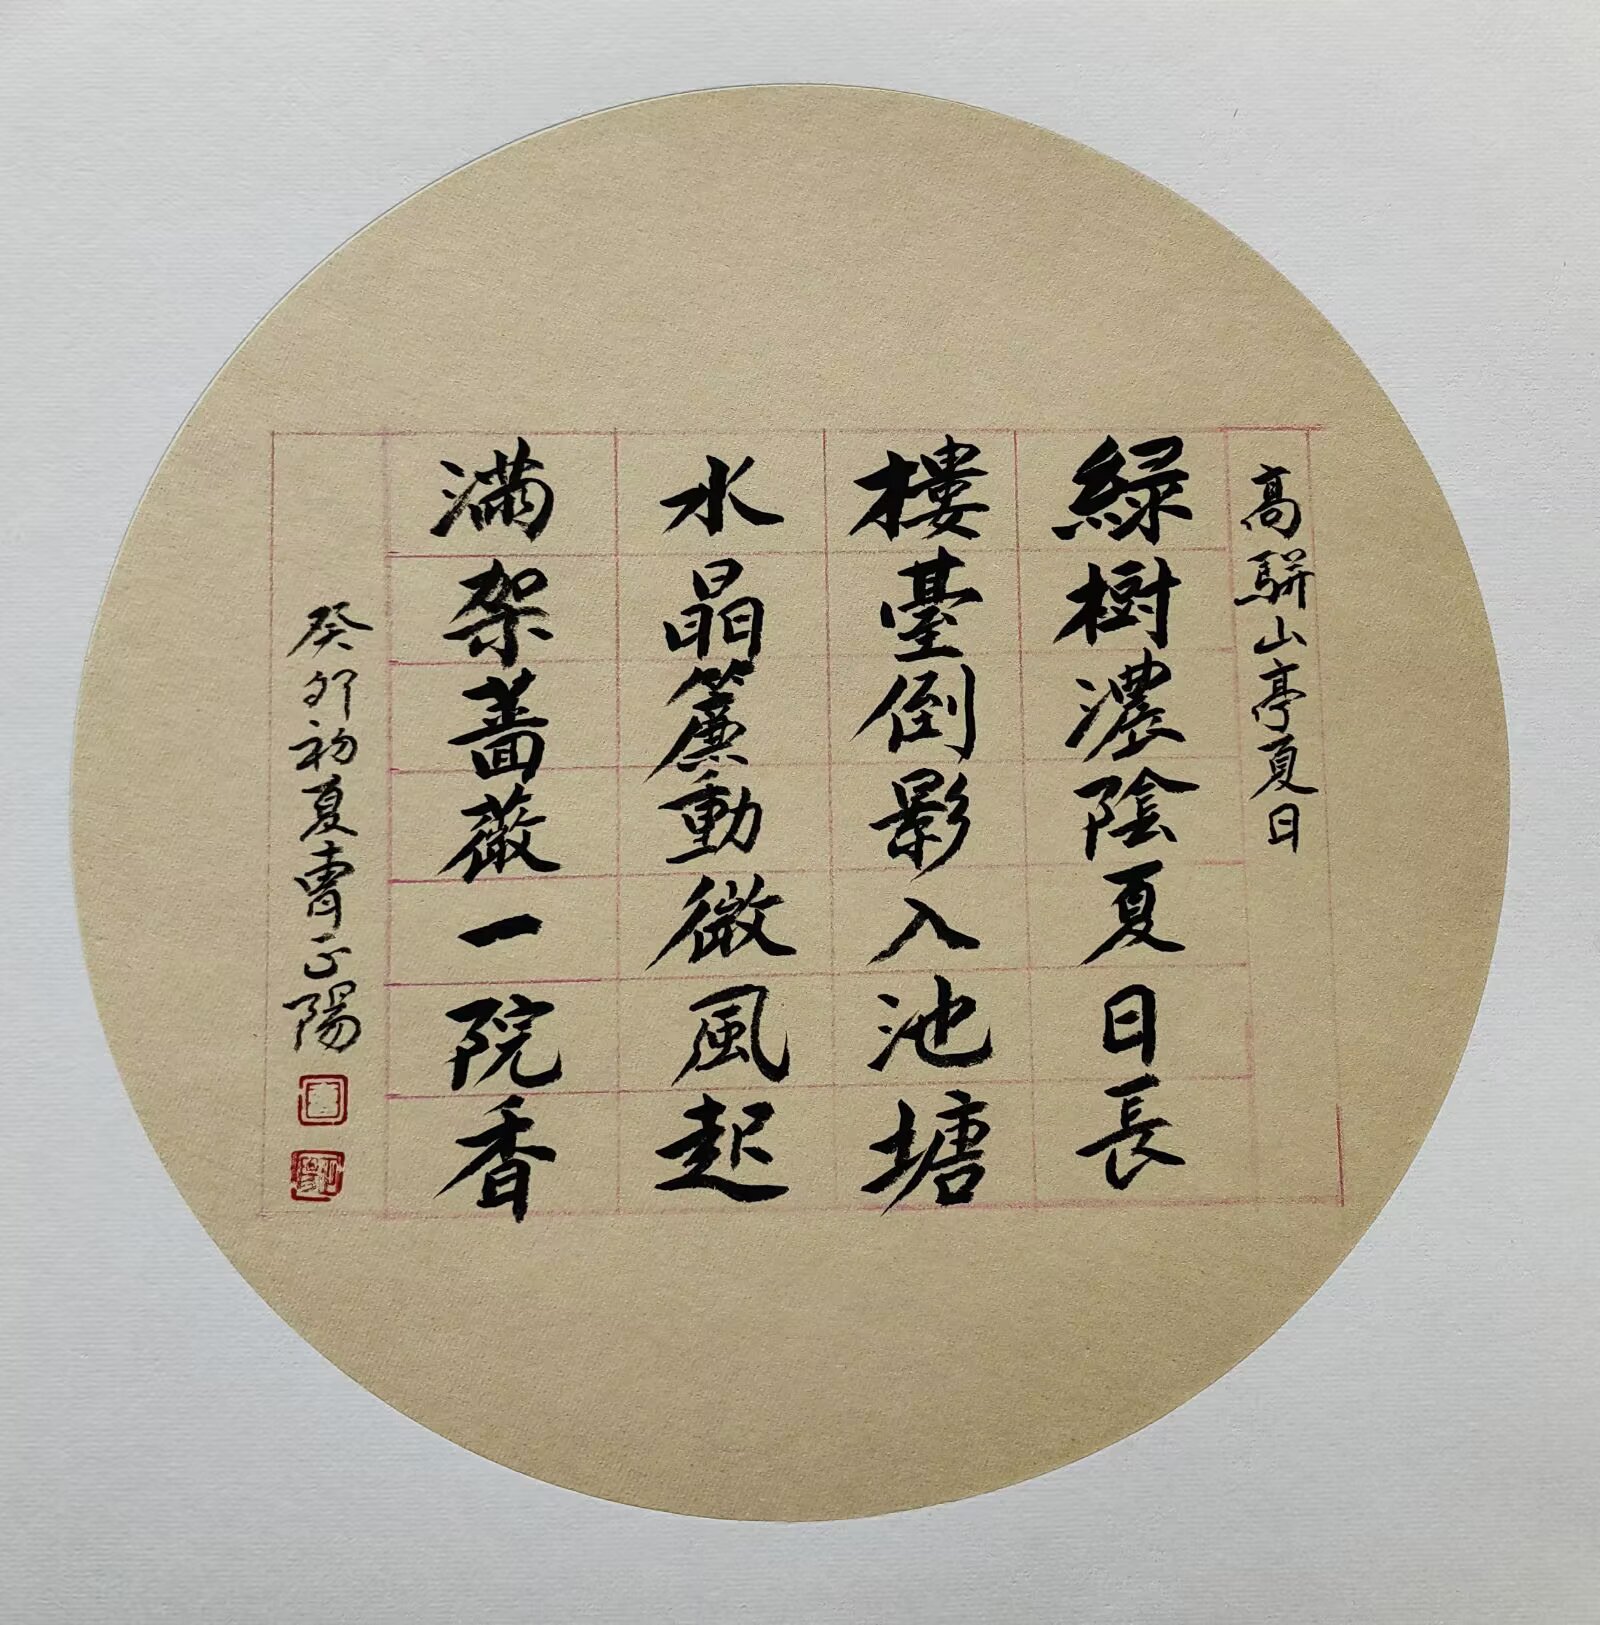 高駢山亭夏日
綠樹濃陰夏日長
樓臺倒影入池塘
水晶簾動微風起
滿架薔薇一院香
癸卯初夏曹正陽